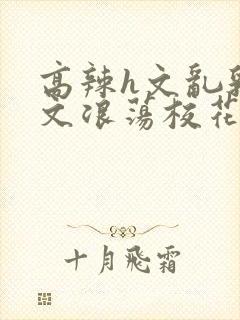 高辣h文乱乳
文浪荡校花
十月飞霜